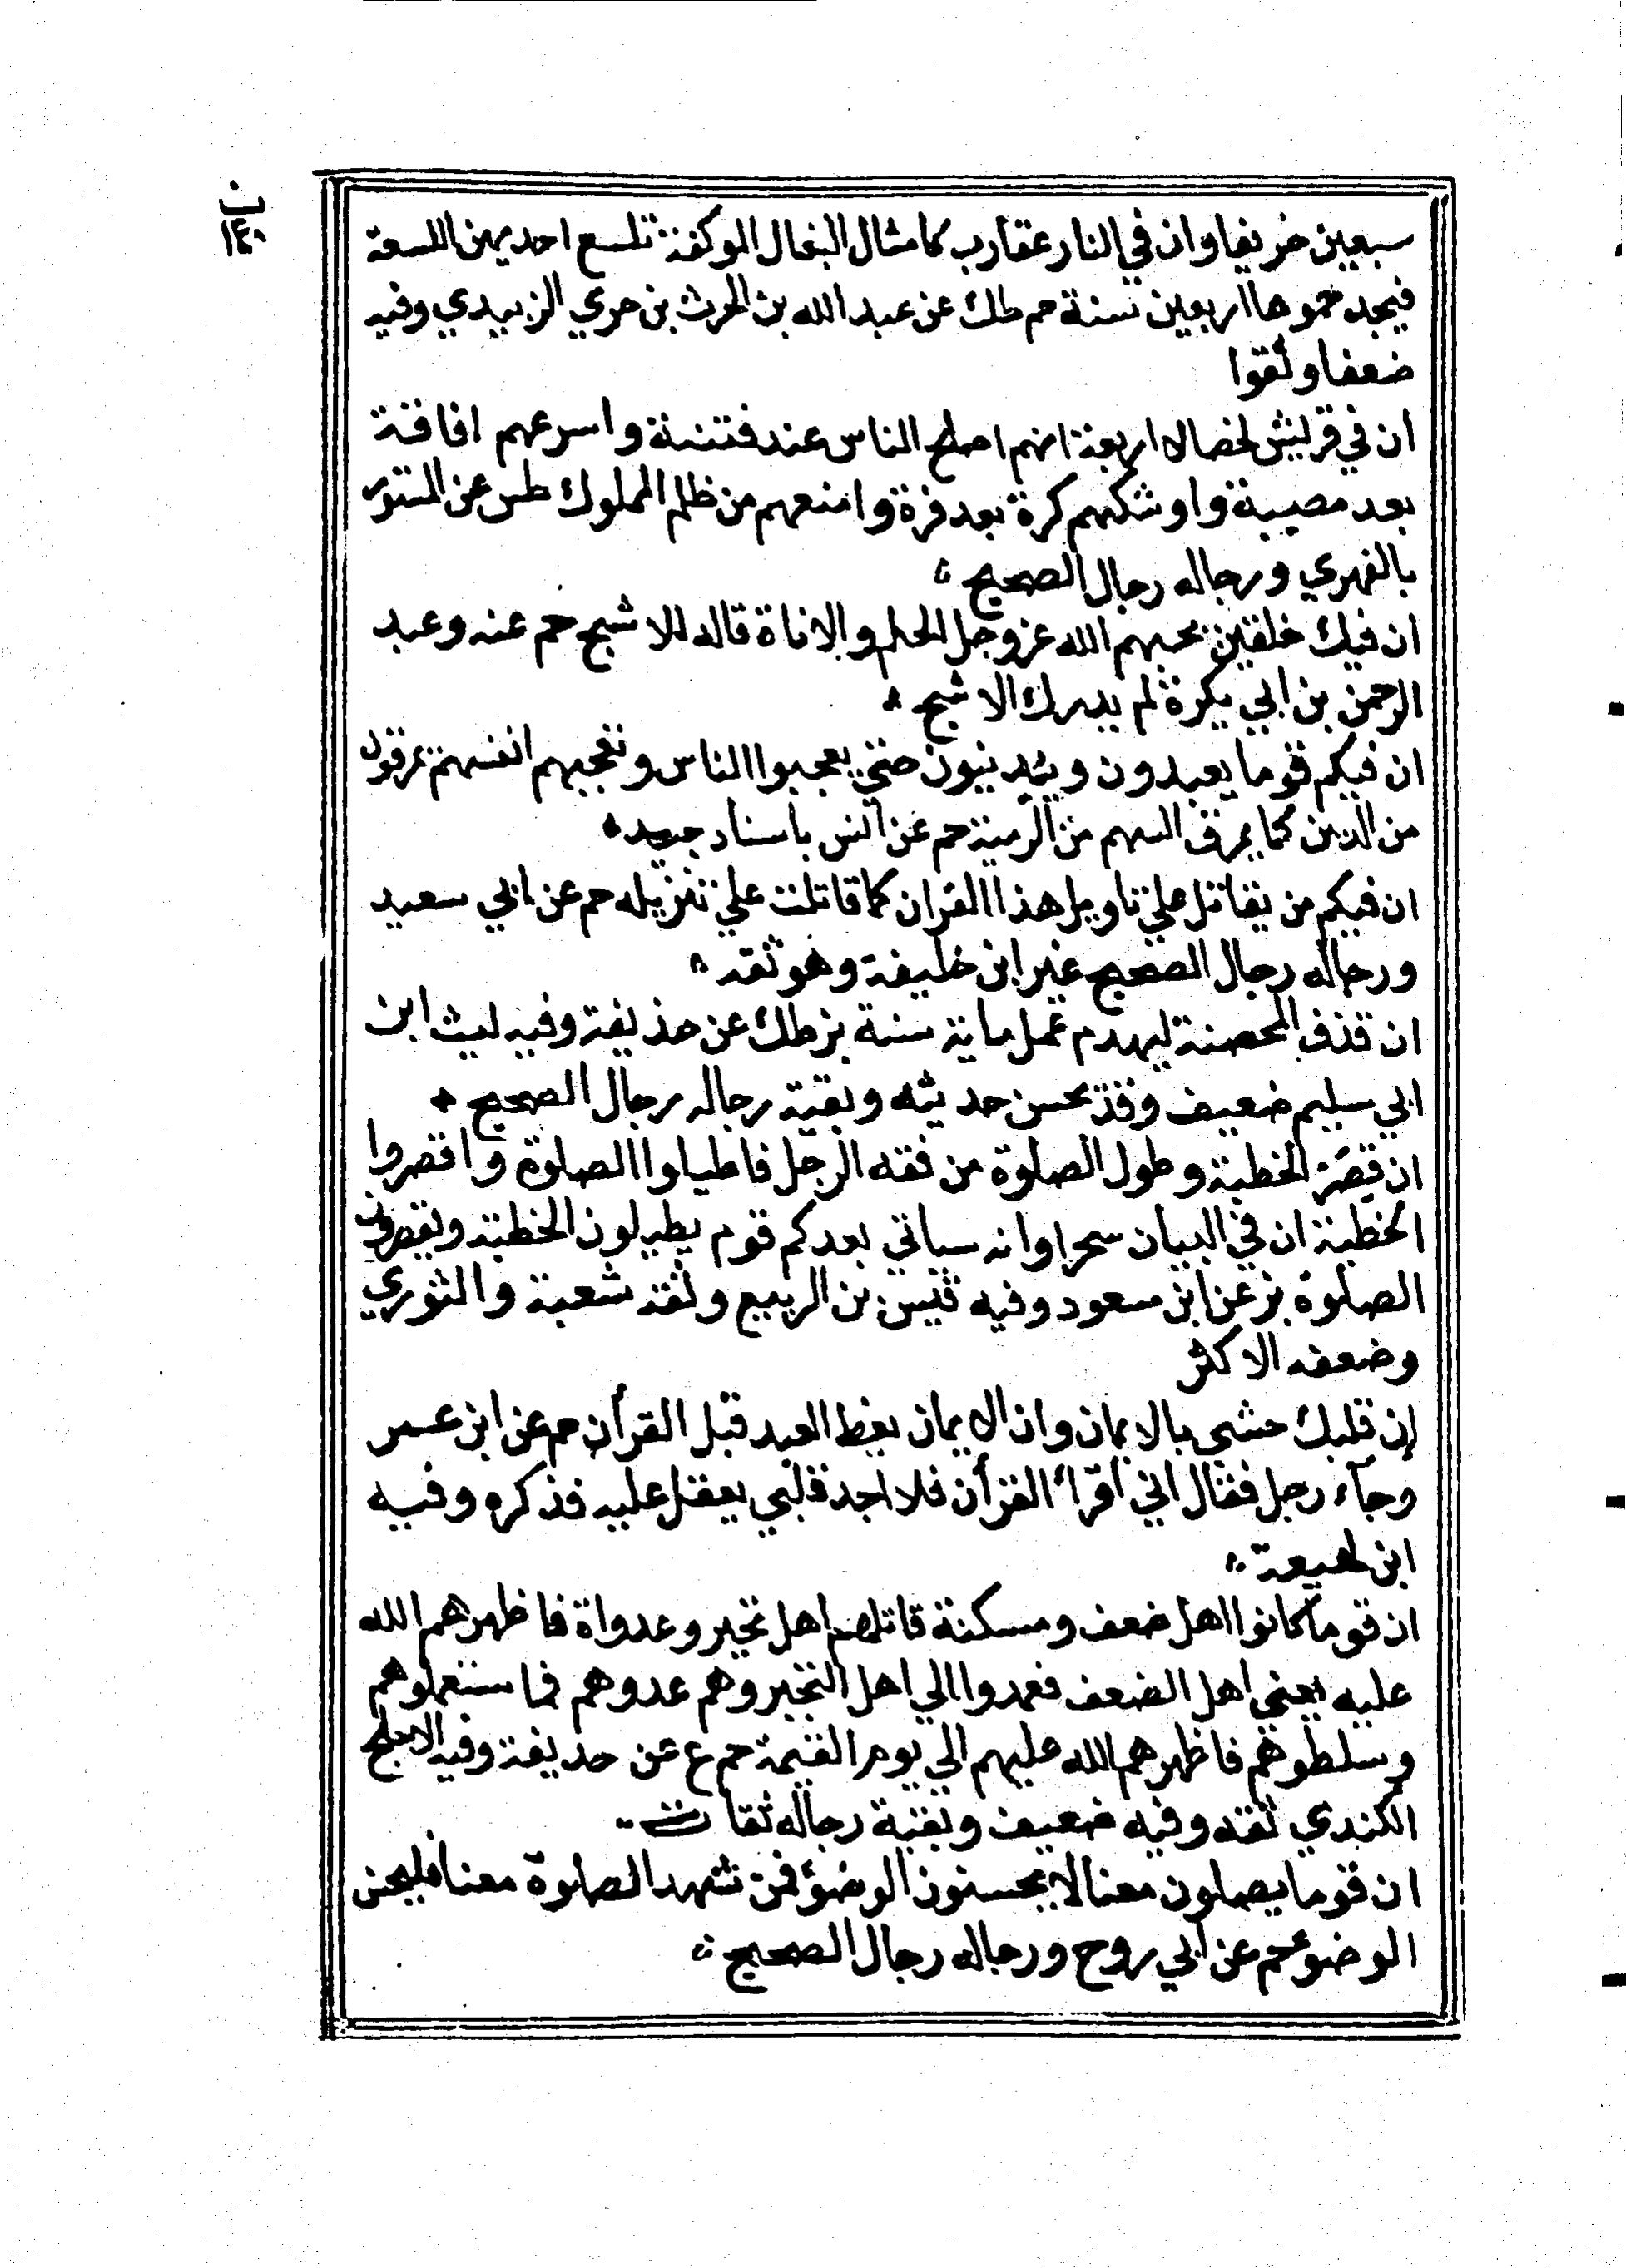 ن
١٤٠
سبعين خريفا وان في النار عقارب كامثال البغال الموكفة تلسع احديهن اللسعة
فيجد حموها اربعين سنة حم طك عن عبد الله بن الحرث بن جزي الزبيدي وفيه
ضعفا وثقوا
ان في قريش لخصالا اربعة انهم اصلح الناس عند فتنة واسرعهم افاقة
بعد مصيبة واوشكهم كرة بعد فرة وامنعهم من ظلم المملوك طس عن المستورد
بالفهري ورجاله رجال الصحيح
ان فيك خلقين يحبهم الله عز وجل الحلم والاناة قاله للاشج حم عنه وعبد
الرحمن بن ابي بكرة لم يدرك الاشج
ان فيكم قوما يعبدون ويدينون حتي يعجبوا الناس وتعجبهم انفسهم يمرقون
من الدين كما يمرق السهم من الرمية حم عن انس باسناد جيد
ان فيكم من يقاتل علي تاويل هذا القران كما قاتلت علي تنزيله حم عن ابي سعيد
ورجاله رجال الصحيح غير ابن خليفة وهو ثقه
ان قذف المحصنة ليهدم عمل ماية سنة بز طك عن حذيفة وفيه ليث ابن
ابي سليم ضعيف وقد يحسن حديثه وبقية رجاله رجال الصحيح
ان قِصَرَ الخطبة وطول الصلوة من فقه الرجل فاطيلوا الصلوة واقصروا
الخطبة ان في البيان سحرا وانه سياتي بعدكم قوم يطيلون الخطبة ويقصرون
الصلوة بز عن ابن مسعود وفيه قيس بن الربيع وثقه شعبة والثوري
وضعفه الاكثر
إن قلبك حشي بالايمان وان الايمان يعط العبد قبل القرأن حم عن ابن عمر
وجآء رجل فقال اني أقرأ القرأن فلا اجد قلبي يعقل عليه فذكره وفيه
ابن لهيعة
ان قوما كانوا اهل ضعف ومسكنة قاتلهم اهل تجبر وعدواة فاظهرهم الله
عليه يعني اهل الضعف فعمدوا الي اهل التجبر وهم عدوهم فما ستعملوهم
وسلطوهم فاظهرهم الله عليهم الي يوم القيمة حم ع عن حذيفة وفيه الاجلح
الكندي ثقه وفيه ضعيف وبقية رجاله ثقات
ان قوما يصلون معنا لا يحسنون الوضؤ فمن شهد الصلوة معنا فليحسن
الوضوء حم عن ابي روح ورجاله رجال الصحيح